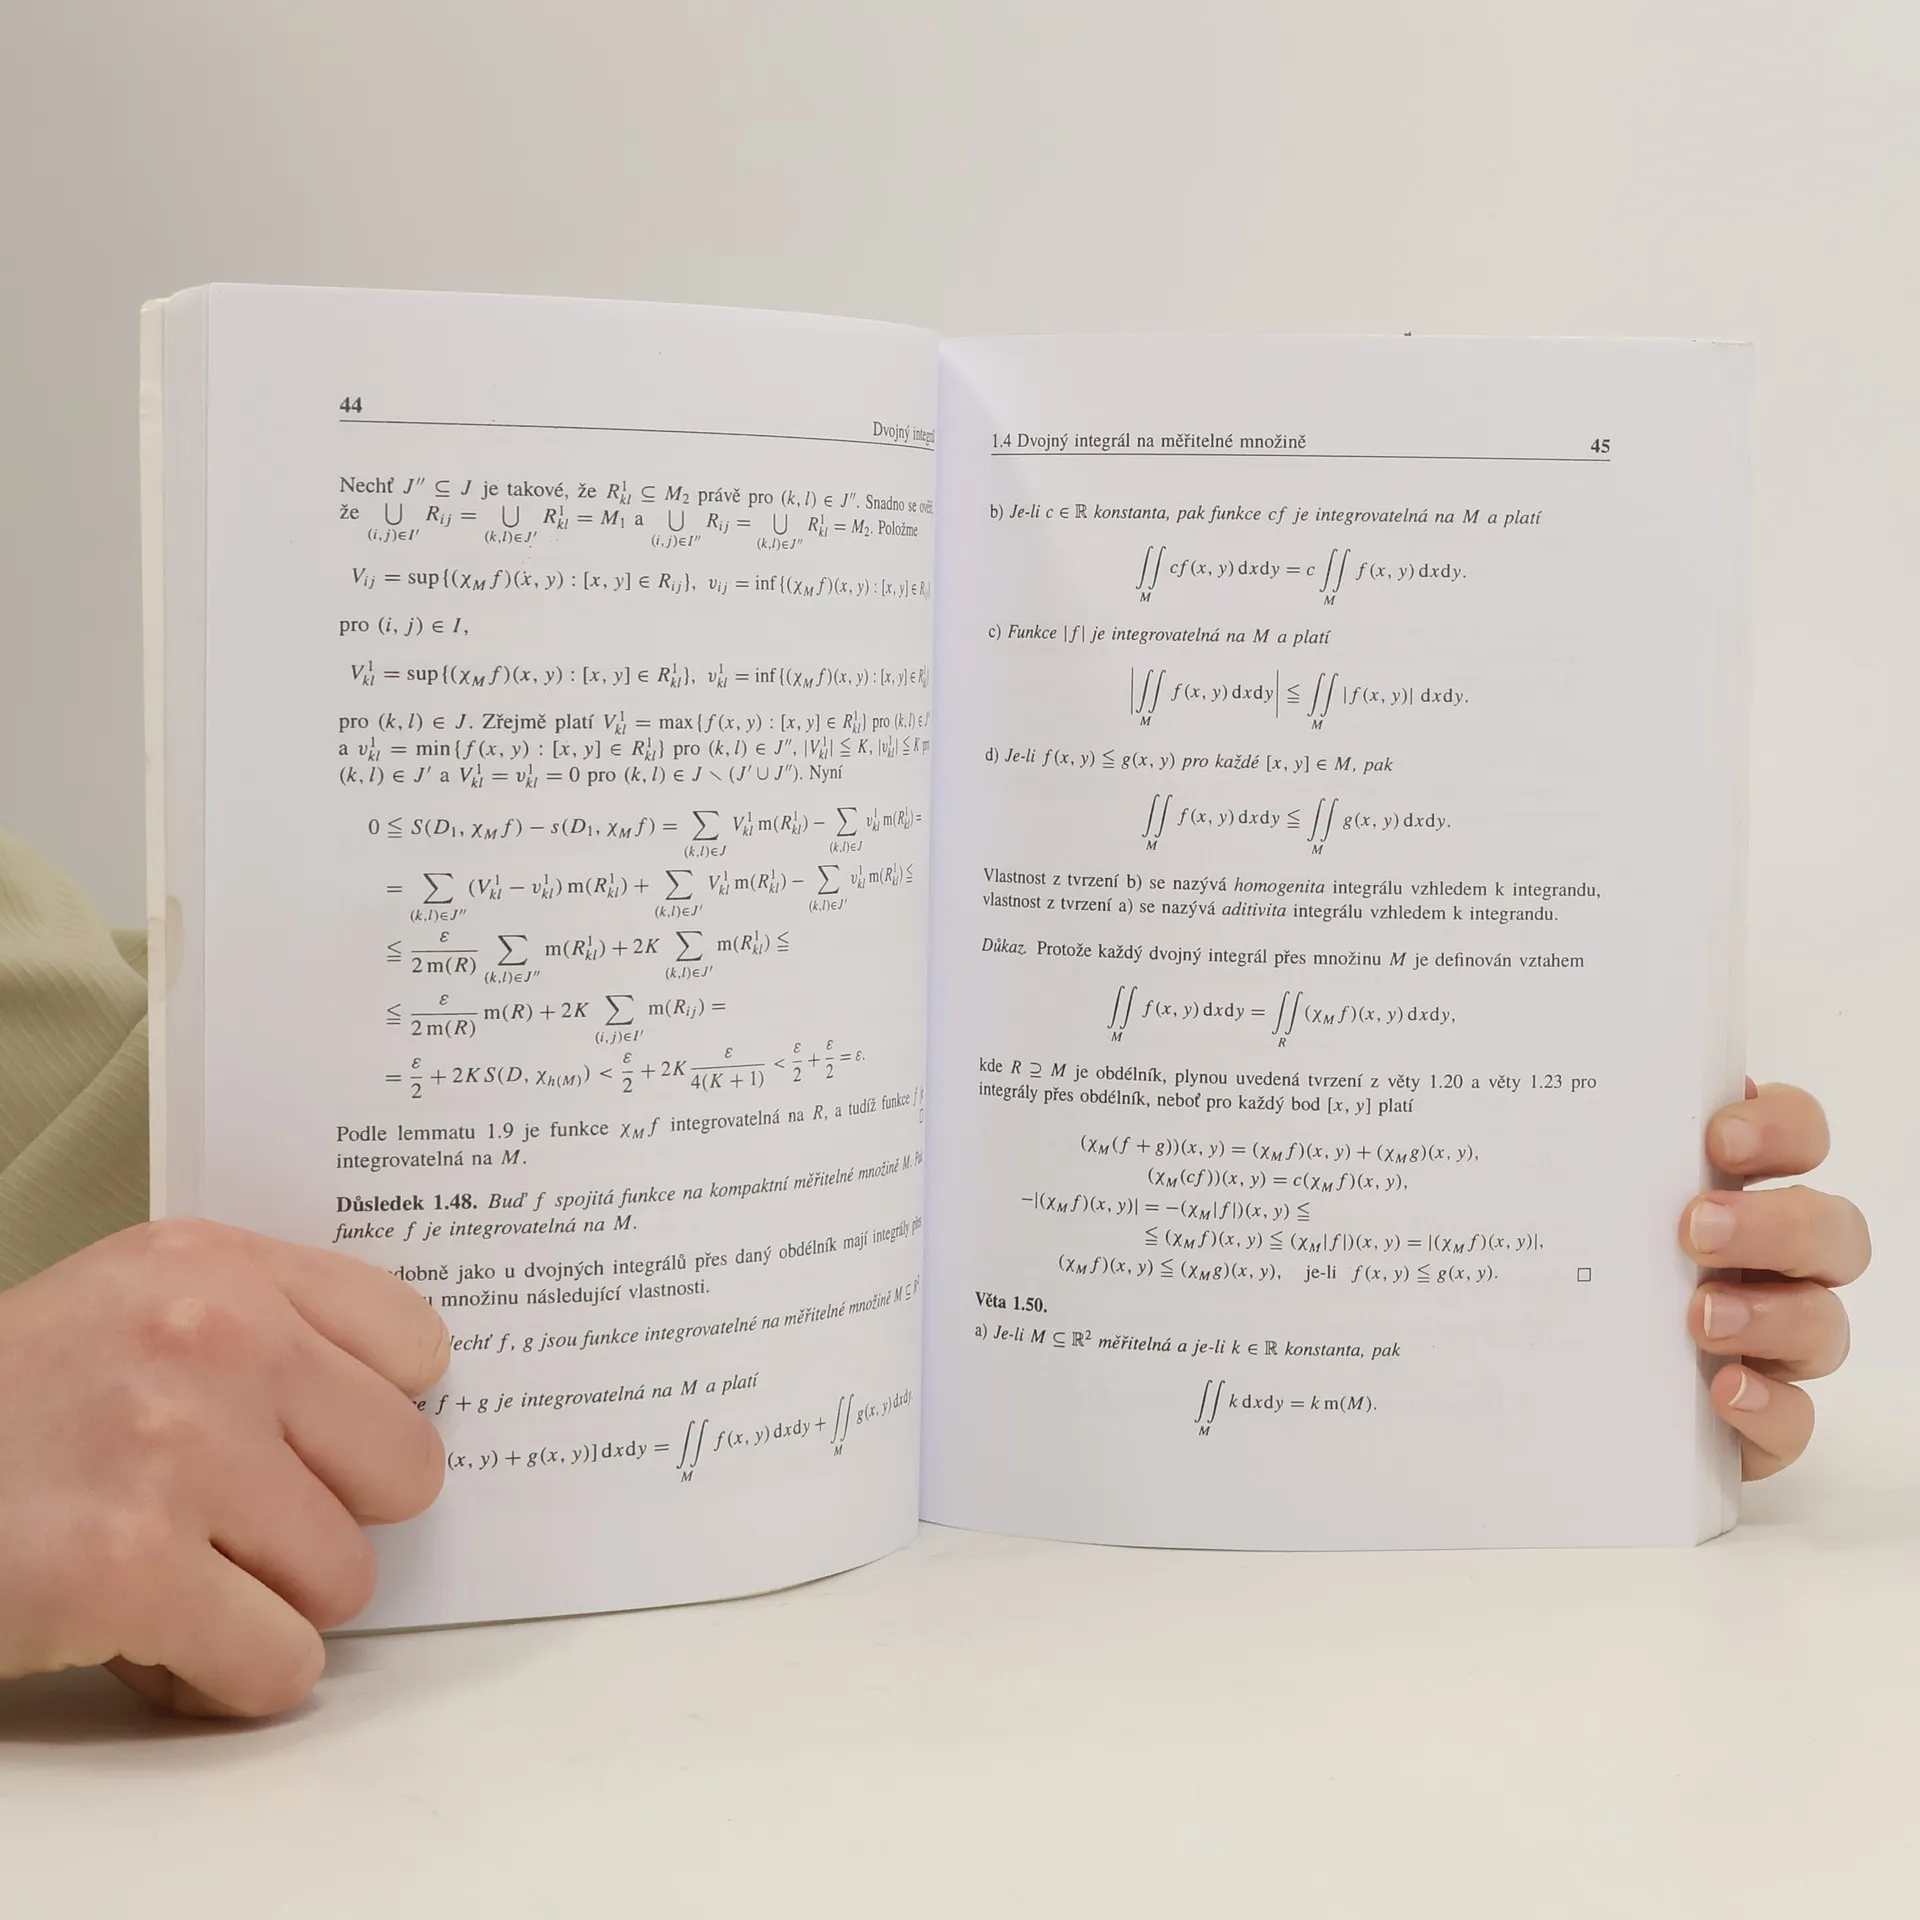 44
Dvojný integrál
Nechť J″ ⊆ J je takové, že R¹ₖₗ ⊆ M₂ právě pro (k, l) ∈ J″. Snadno se
že ⋃ Rᵢⱼ = ⋃ R¹ₖₗ = M₁ a ⋃ Rᵢⱼ = ⋃ R¹ₖₗ = M₂. Položme
(i,j)∈I′ (k,l)∈J′ (i,j)∈I″ (k,l)∈J″
Vᵢⱼ = sup{(χ_M f)(x, y) : [x, y] ∈ Rᵢⱼ}, vᵢⱼ = inf{(χ_M f)(x, y) : [x, y] ∈ Rᵢⱼ}
pro (i, j) ∈ I,
V¹ₖₗ = sup{(χ_M f)(x, y) : [x, y] ∈ R¹ₖₗ}, v¹ₖₗ = inf{(χ_M f)(x, y) : [x, y] ∈ R¹ₖₗ}
pro (k, l) ∈ J. Zřejmě platí V¹ₖₗ = max{f(x, y) : [x, y] ∈ R¹ₖₗ} pro (k, l) ∈ J″
a v¹ₖₗ = min{f(x, y) : [x, y] ∈ R¹ₖₗ} pro (k, l) ∈ J″, |V¹ₖₗ| ≦ K, |v¹ₖₗ| ≦ K pro
(k, l) ∈ J′ a V¹ₖₗ = v¹ₖₗ = 0 pro (k, l) ∈ J ∖ (J′ ∪ J″). Nyní
0 ≦ S(D₁, χ_M f) − s(D₁, χ_M f) = ∑ V¹ₖₗ m(R¹ₖₗ) − ∑ v¹ₖₗ m(R¹ₖₗ) =
(k,l)∈J (k,l)∈J
= ∑ (V¹ₖₗ − v¹ₖₗ) m(R¹ₖₗ) + ∑ V¹ₖₗ m(R¹ₖₗ) − ∑ v¹ₖₗ m(R¹ₖₗ) ≦
(k,l)∈J″ (k,l)∈J′ (k,l)∈J′
≦ ε/(2 m(R)) ∑ m(R¹ₖₗ) + 2K ∑ m(R¹ₖₗ) ≦
(k,l)∈J″ (k,l)∈J′
≦ ε/(2 m(R)) m(R) + 2K ∑ m(Rᵢⱼ) =
(i,j)∈I′
= ε/2 + 2K S(D, χ_h(M)) < ε/2 + 2K ε/(4(K + 1)) < ε/2 + ε/2 = ε.
Podle lemmatu 1.9 je funkce χ_M f integrovatelná na R, a tudíž funkce f je
integrovatelná na M. □
Důsledek 1.48. Buď f spojitá funkce na kompaktní měřitelné množině M. Pak
funkce f je integrovatelná na M.
dobně jako u dvojných integrálů přes daný obdélník mají integrály přes
množinu následující vlastnosti.
echť f, g jsou funkce integrovatelné na měřitelné množině M ⊆ ℝ²
e f + g je integrovatelná na M a platí
(x, y) + g(x, y)] dxdy = ∬ f(x, y) dxdy + ∬ g(x, y) dxdy.
M M
1.4 Dvojný integrál na měřitelné množině 45
b) Je-li c ∈ ℝ konstanta, pak funkce cf je integrovatelná na M a platí
∬ cf(x, y) dxdy = c ∬ f(x, y) dxdy.
M M
c) Funkce |f| je integrovatelná na M a platí
|∬ f(x, y) dxdy| ≦ ∬ |f(x, y)| dxdy.
M M
d) Je-li f(x, y) ≦ g(x, y) pro každé [x, y] ∈ M, pak
∬ f(x, y) dxdy ≦ ∬ g(x, y) dxdy.
M M
Vlastnost z tvrzení b) se nazývá homogenita integrálu vzhledem k integrandu,
vlastnost z tvrzení a) se nazývá aditivita integrálu vzhledem k integrandu.
Důkaz. Protože každý dvojný integrál přes množinu M je definován vztahem
∬ f(x, y) dxdy = ∬ (χ_M f)(x, y) dxdy,
M R
kde R ⊇ M je obdélník, plynou uvedená tvrzení z věty 1.20 a věty 1.23 pro
integrály přes obdélník, neboť pro každý bod [x, y] platí
(χ_M(f + g))(x, y) = (χ_M f)(x, y) + (χ_M g)(x, y),
(χ_M(cf))(x, y) = c(χ_M f)(x, y),
−|(χ_M f)(x, y)| = −(χ_M|f|)(x, y) ≦
≦ (χ_M f)(x, y) ≦ (χ_M|f|)(x, y) = |(χ_M f)(x, y)|,
(χ_M f)(x, y) ≦ (χ_M g)(x, y), je-li f(x, y) ≦ g(x, y). □
Věta 1.50.
a) Je-li M ⊆ ℝ² měřitelná a je-li k ∈ ℝ konstanta, pak
∬ k dxdy = k m(M).
M